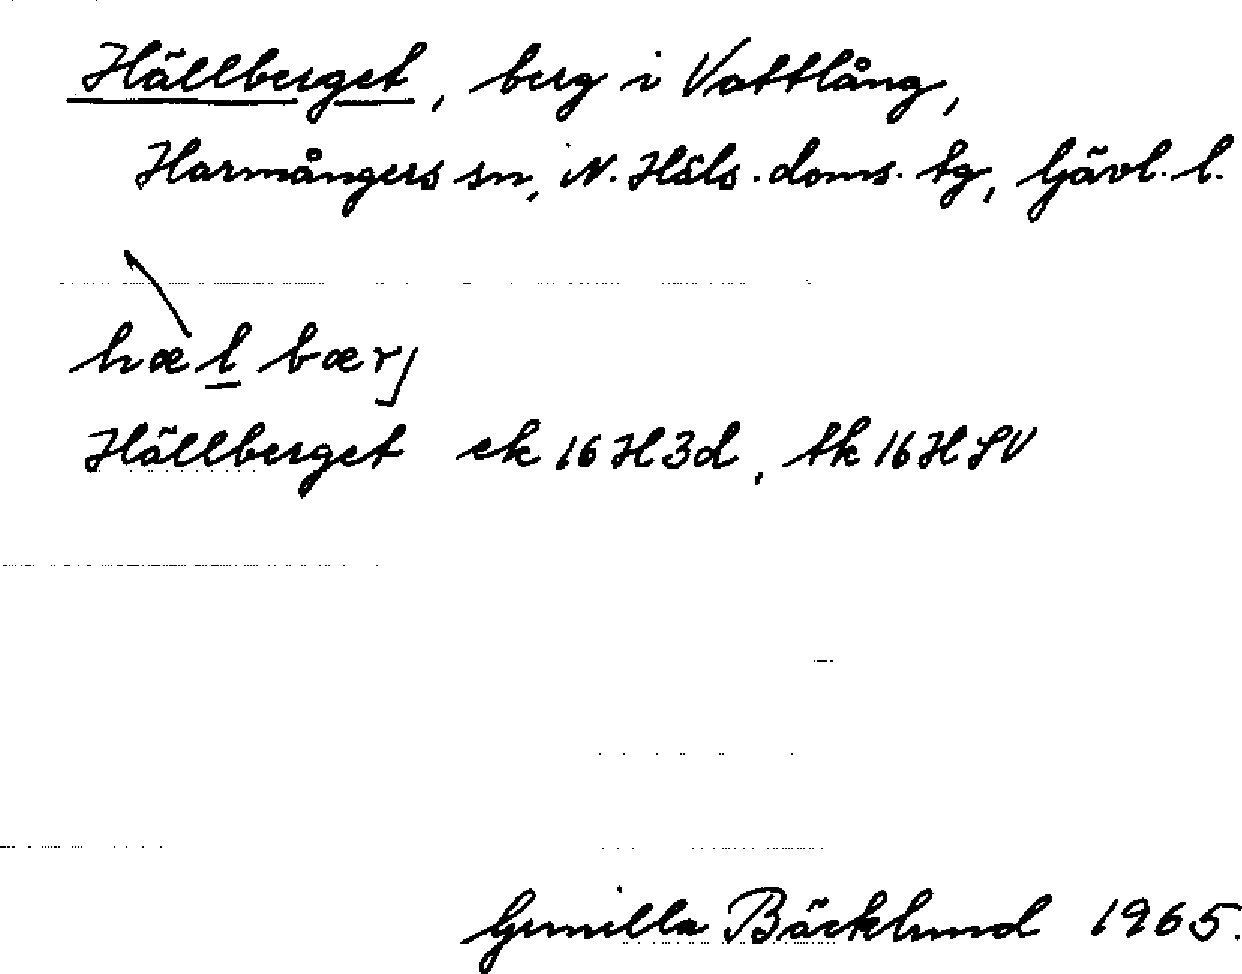 Hällberget, berg i Vattlång,
Harmångers sn, N. Häls. doms. tg, Gävl. l.
hæl bærj
Hällberget ek 16H3d, tk 16HSV
Gunilla Bäcklund 1965.